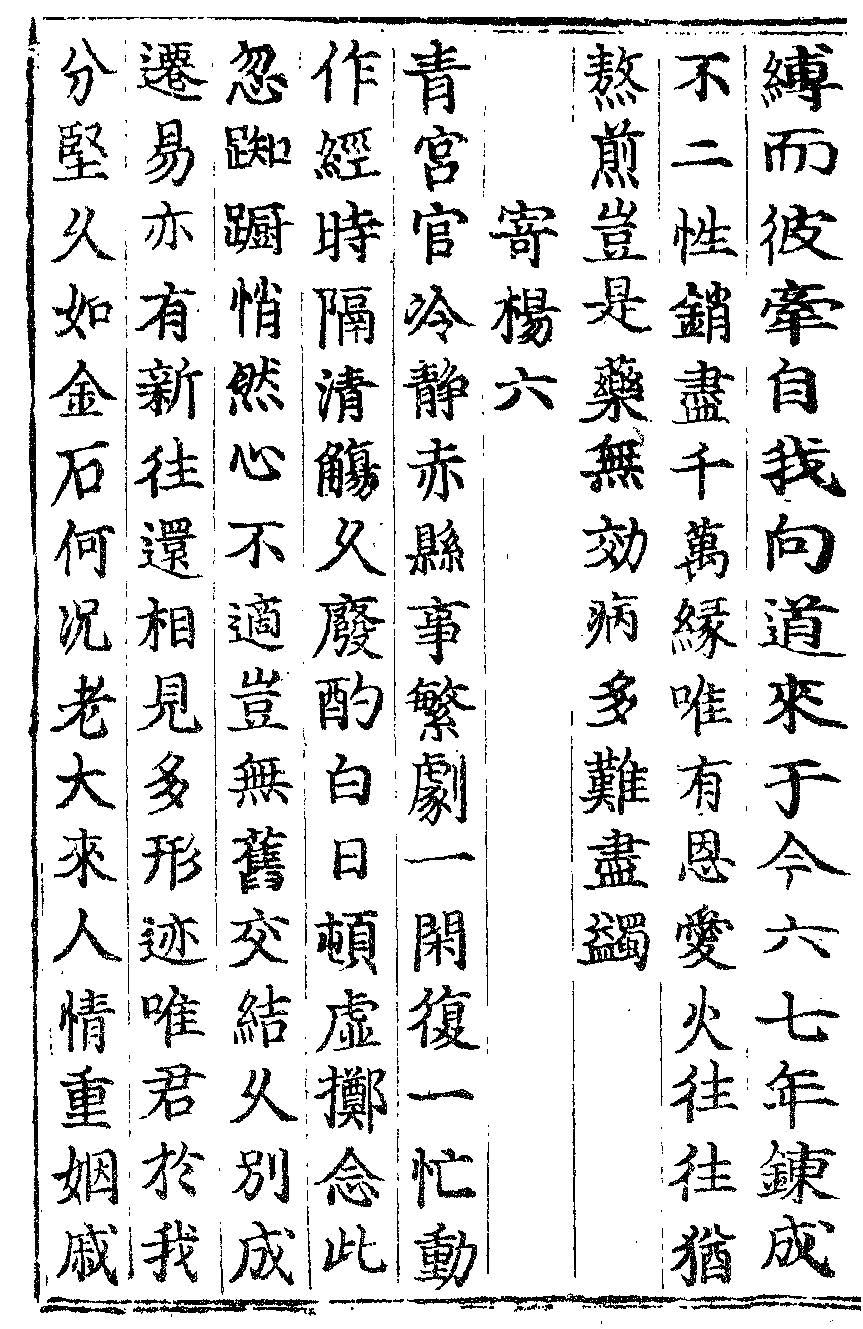 縛而彼牽自我向道來于今六七年錬成
不二性銷盡千萬緣唯有恩愛火往往猶
熬煎豈是藥無効病多難盡蠲
寄楊六
青宮官冷靜赤縣事繁劇一閑復一忙動
作經時隔清觴久廢酌白日頓虛擲念此
忽踟蹰悄然心不適豈無舊交結久別成
遷易亦有新往還相見多形迹唯君於我
分堅久如金石何況老大來人情重姻戚